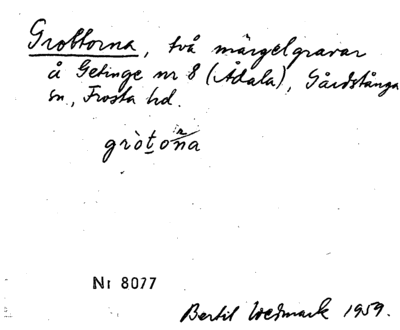 Grottorna, två märgelgravar
å Getinge nr 8 (Ådala), Gårdstånga
sn., Frosta hd.
gròtoṉa
Nr 8077
Bertil Wedmark 1959.